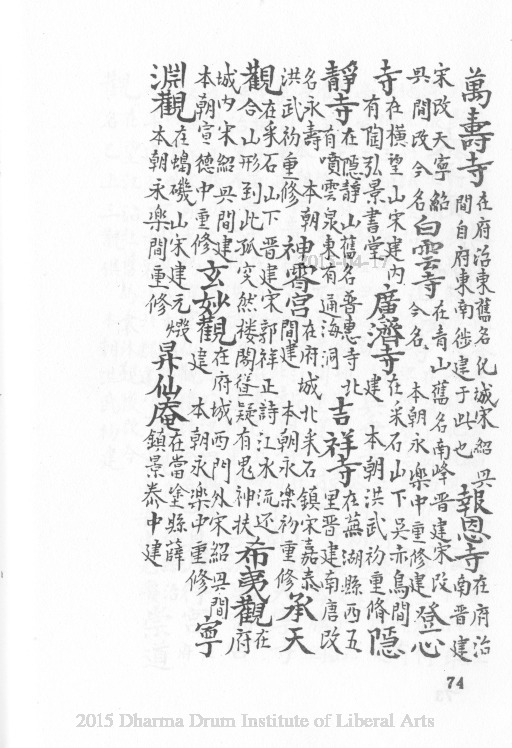 萬壽寺在府治東舊名化城宋紹興間自府東南徙建于此也報恩寺在府治南晉建
宋改天寧紹興間改今名白雲寺在青山舊名南峰晉建宋改今名 本朝永樂中重修建登心
寺在橫望山宋建內有陶弘景書堂廣濟寺在采石山下吳赤烏間建 本朝洪武初重脩隱
靜寺在隱靜山舊名普惠寺北有噴雲泉東有通海洞吉祥寺在蕪湖縣西五里晉建南唐改
名永壽 本朝洪武初重修神霄宮在府城北采石鎮宋嘉泰間建 本朝永樂初重修承天
觀在采石山下晉建宋郭祥正詩江水流还合山形到此孤突然楼閣聳疑有鬼神扶希夷觀在府
城內宋紹興間建本朝宣德中重修玄妙觀在府城西門外宋紹興間建 本朝永樂中重修寧
淵觀在蝎磯山宋建元燬本朝永樂間重修昇仙庵在當塗縣薛鎮景泰中建
74
2015 Dharma Drum Institute of Liberal Arts